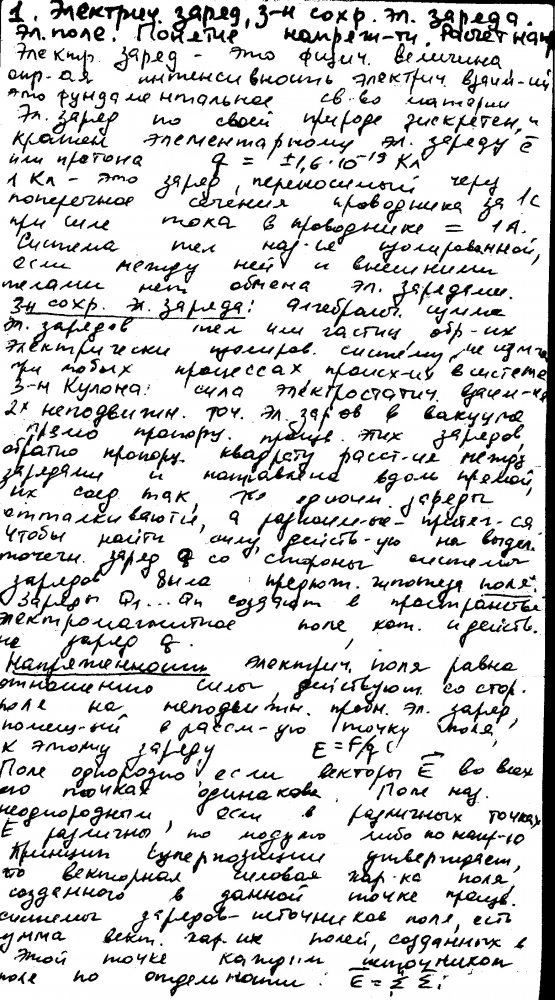 1. Электрич. заряд, з-н сохр. эл. заряда.
Эл. поле. Понятие напряж-ти. Расчет нап
Электр. заряд - это физич. величина
опр-ая интенсивность электрич. взаим-ий
это фундаментальное св-во материи
Эл. заряд по своей природе дискретен, и
кратен элементарному эл. заряду ē
или протона q = ±1,6·10⁻¹⁹ Кл
1 Кл - это заряд, переносимый через
поперечное сечения проводника за 1с
при силе тока в проводнике = 1А.
Система тел наз-ся изолированной,
если между ней и внешними
телами нет обмена эл. зарядами.
З-н сохр. эл. заряда: алгебраич. сумма
эл. зарядов тел или частиц обр-их
электрически изолиров. систему, не измен
при любых процессах происх-их в системе
З-н Кулона: сила электростатич. взаим-ия
2х неподвижн. точ. эл. зар-ов в вакууме
прямо пропорц. произв. этих зарядов,
обратно пропорц. квадрату расст-ия между
зарядами и направлена вдоль прямой,
их соед. так, что одноим. заряды
отталкиваются, а разноим-ые - притяг-ся.
Чтобы найти силу, действ-ую на выдел.
точечн. заряд q со стороны системы
зарядов была предлож. гипотеза поля:
Заряды Q₁...Qn создают в пространстве
электромагнитное поле кот. и действ.
на заряд q.
Напряженность электрич. поля равна
отношению силы, действующ. со стор.
поля на неподвижн. пробн. эл. заряд,
помещ-ый в рассм-ую точку поля,
к этому заряду E = F/q
Поле однородно если векторы E⃗ во всех
его точках одинаковы. Поле наз.
неоднородным, если в различных точках
E⃗ различны по модулю либо по напр-ю
Принцип суперпозиции утверждает,
что векторная силовая хар-ка поля
созданного в данной точке простр.
системы зарядов-источников поля, есть
сумма вект. хар-ик полей, созданных в
этой точке каждым источником
поле по отдельности: E⃗ = Σ E⃗i